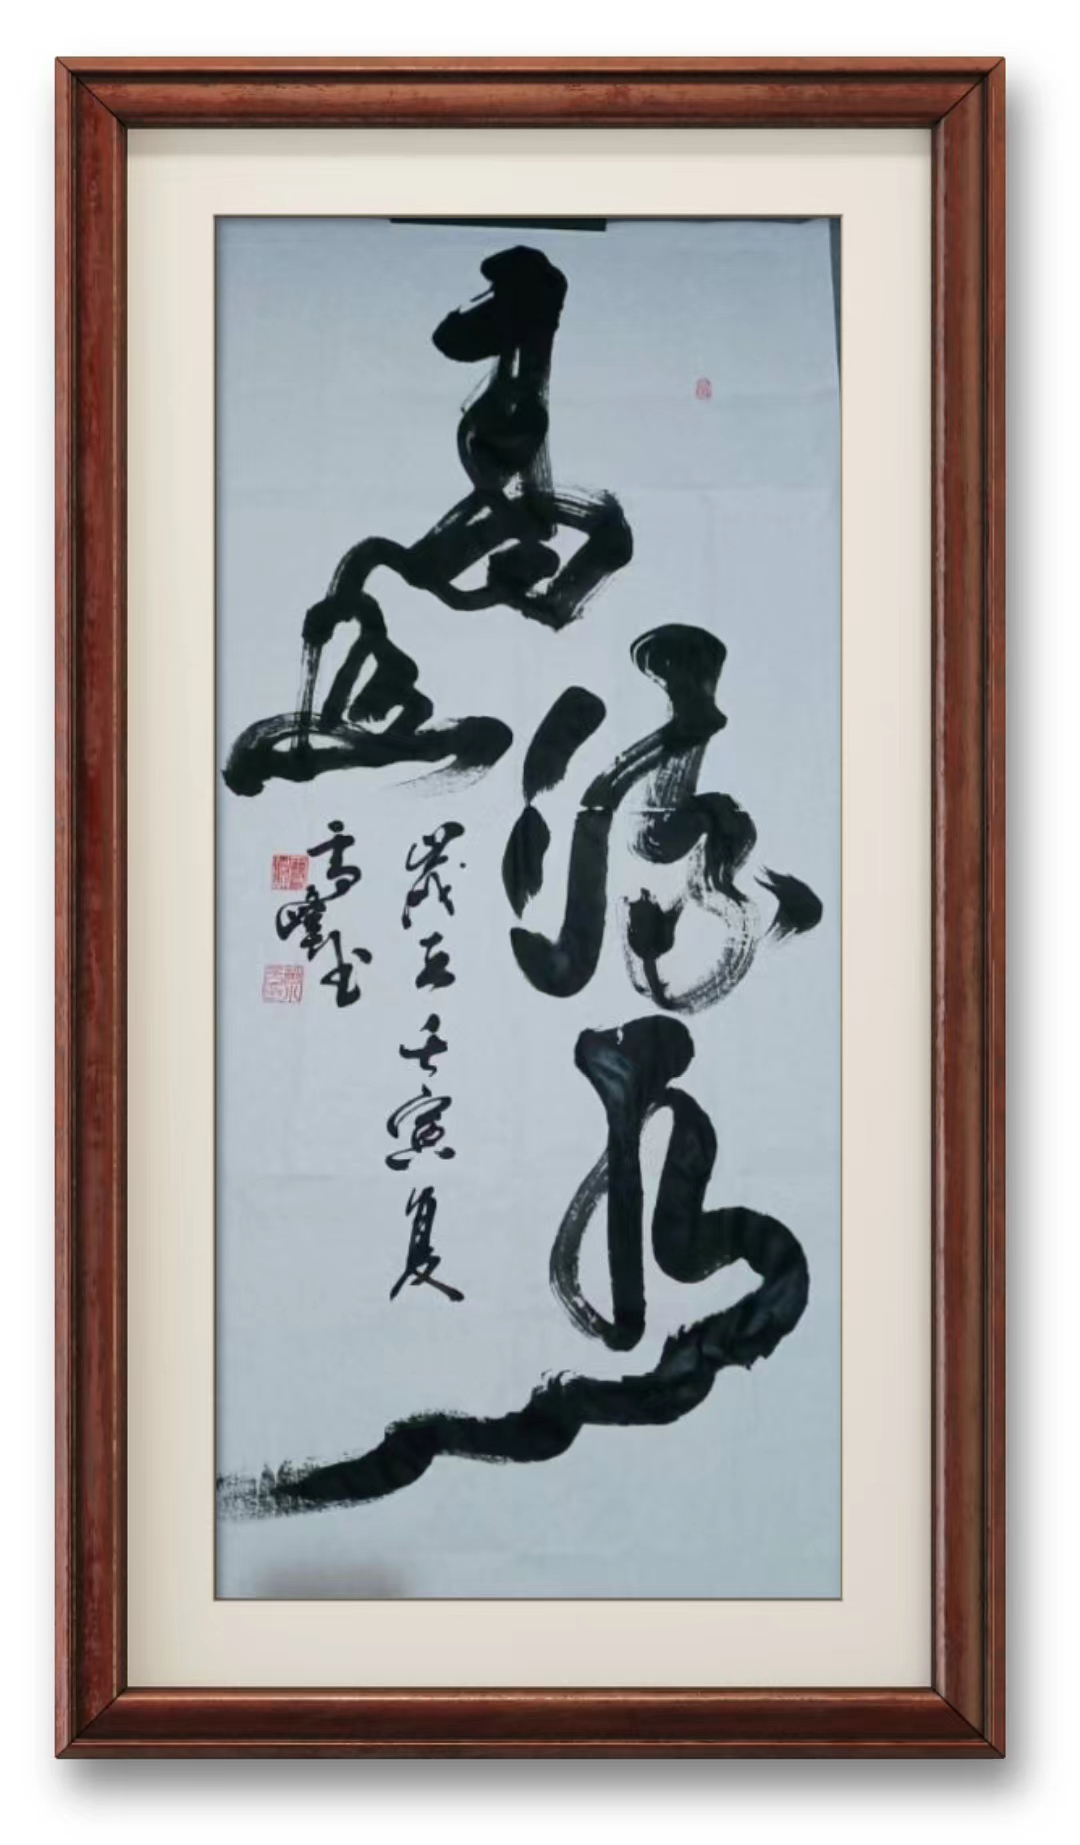 高山流水
歲在壬寅夏
高峰书